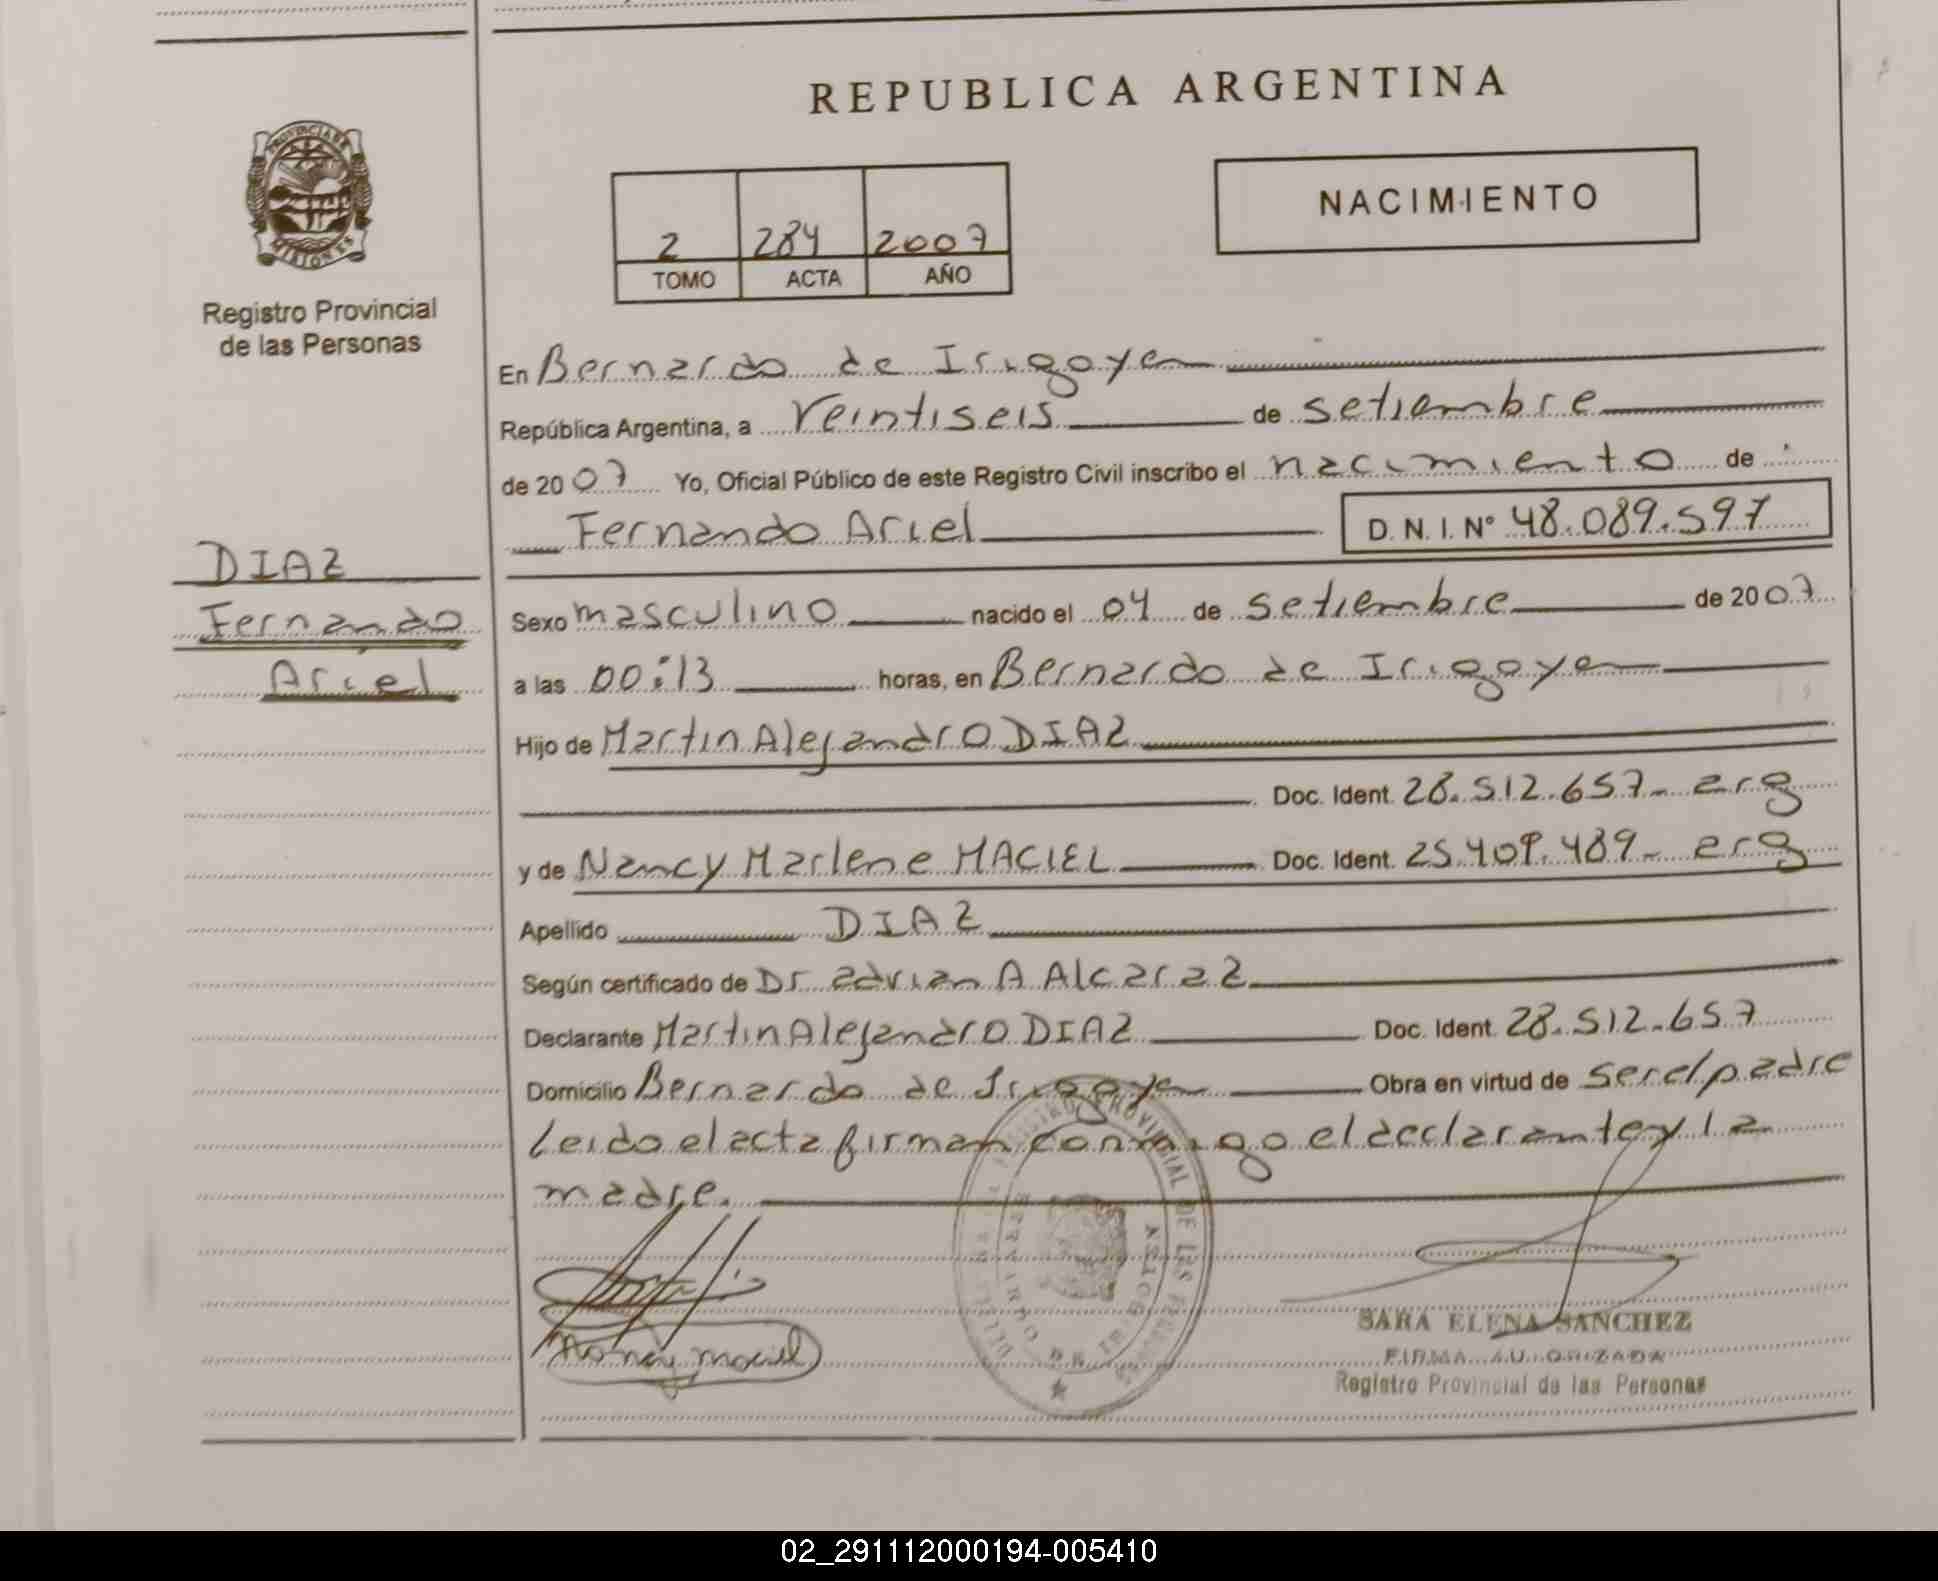 REPUBLICA ARGENTINA
PROVINCIA DE
MISIONES
Registro Provincial
de las Personas
NACIMIENTO
2 284 2007
TOMO ACTA AÑO
En Bernardo de Irigoyen
República Argentina, a Veintiseis de setiembre
de 2007 Yo, Oficial Público de este Registro Civil inscribo el nacimiento de
Fernando Ariel D.N.I. Nº 48.089.597
DIAZ
Fernando
Ariel
Sexo masculino nacido el 04 de setiembre de 2007
a las 00:13 horas, en Bernardo de Irigoyen
Hijo de Martin Alejandro DIAZ
Doc. Ident. 28.512.657- arg
y de Nancy Marlene MACIEL Doc. Ident. 25.409.489- arg
Apellido DIAZ
Según certificado de Dr. adrian A Alcaraz
Declarante Martin Alejandro DIAZ Doc. Ident. 28.512.657
Domicilio Bernardo de Irigoyen Obra en virtud de ser el padre
Leido el acta firman conmigo el declarante y la
madre.
REGISTRO PROVINCIAL DE LAS PERSONAS
Nancy Maciel
SARA ELENA SANCHEZ
FIRMA AUTORIZADA
Registro Provincial de las Personas
02_291112000194-005410